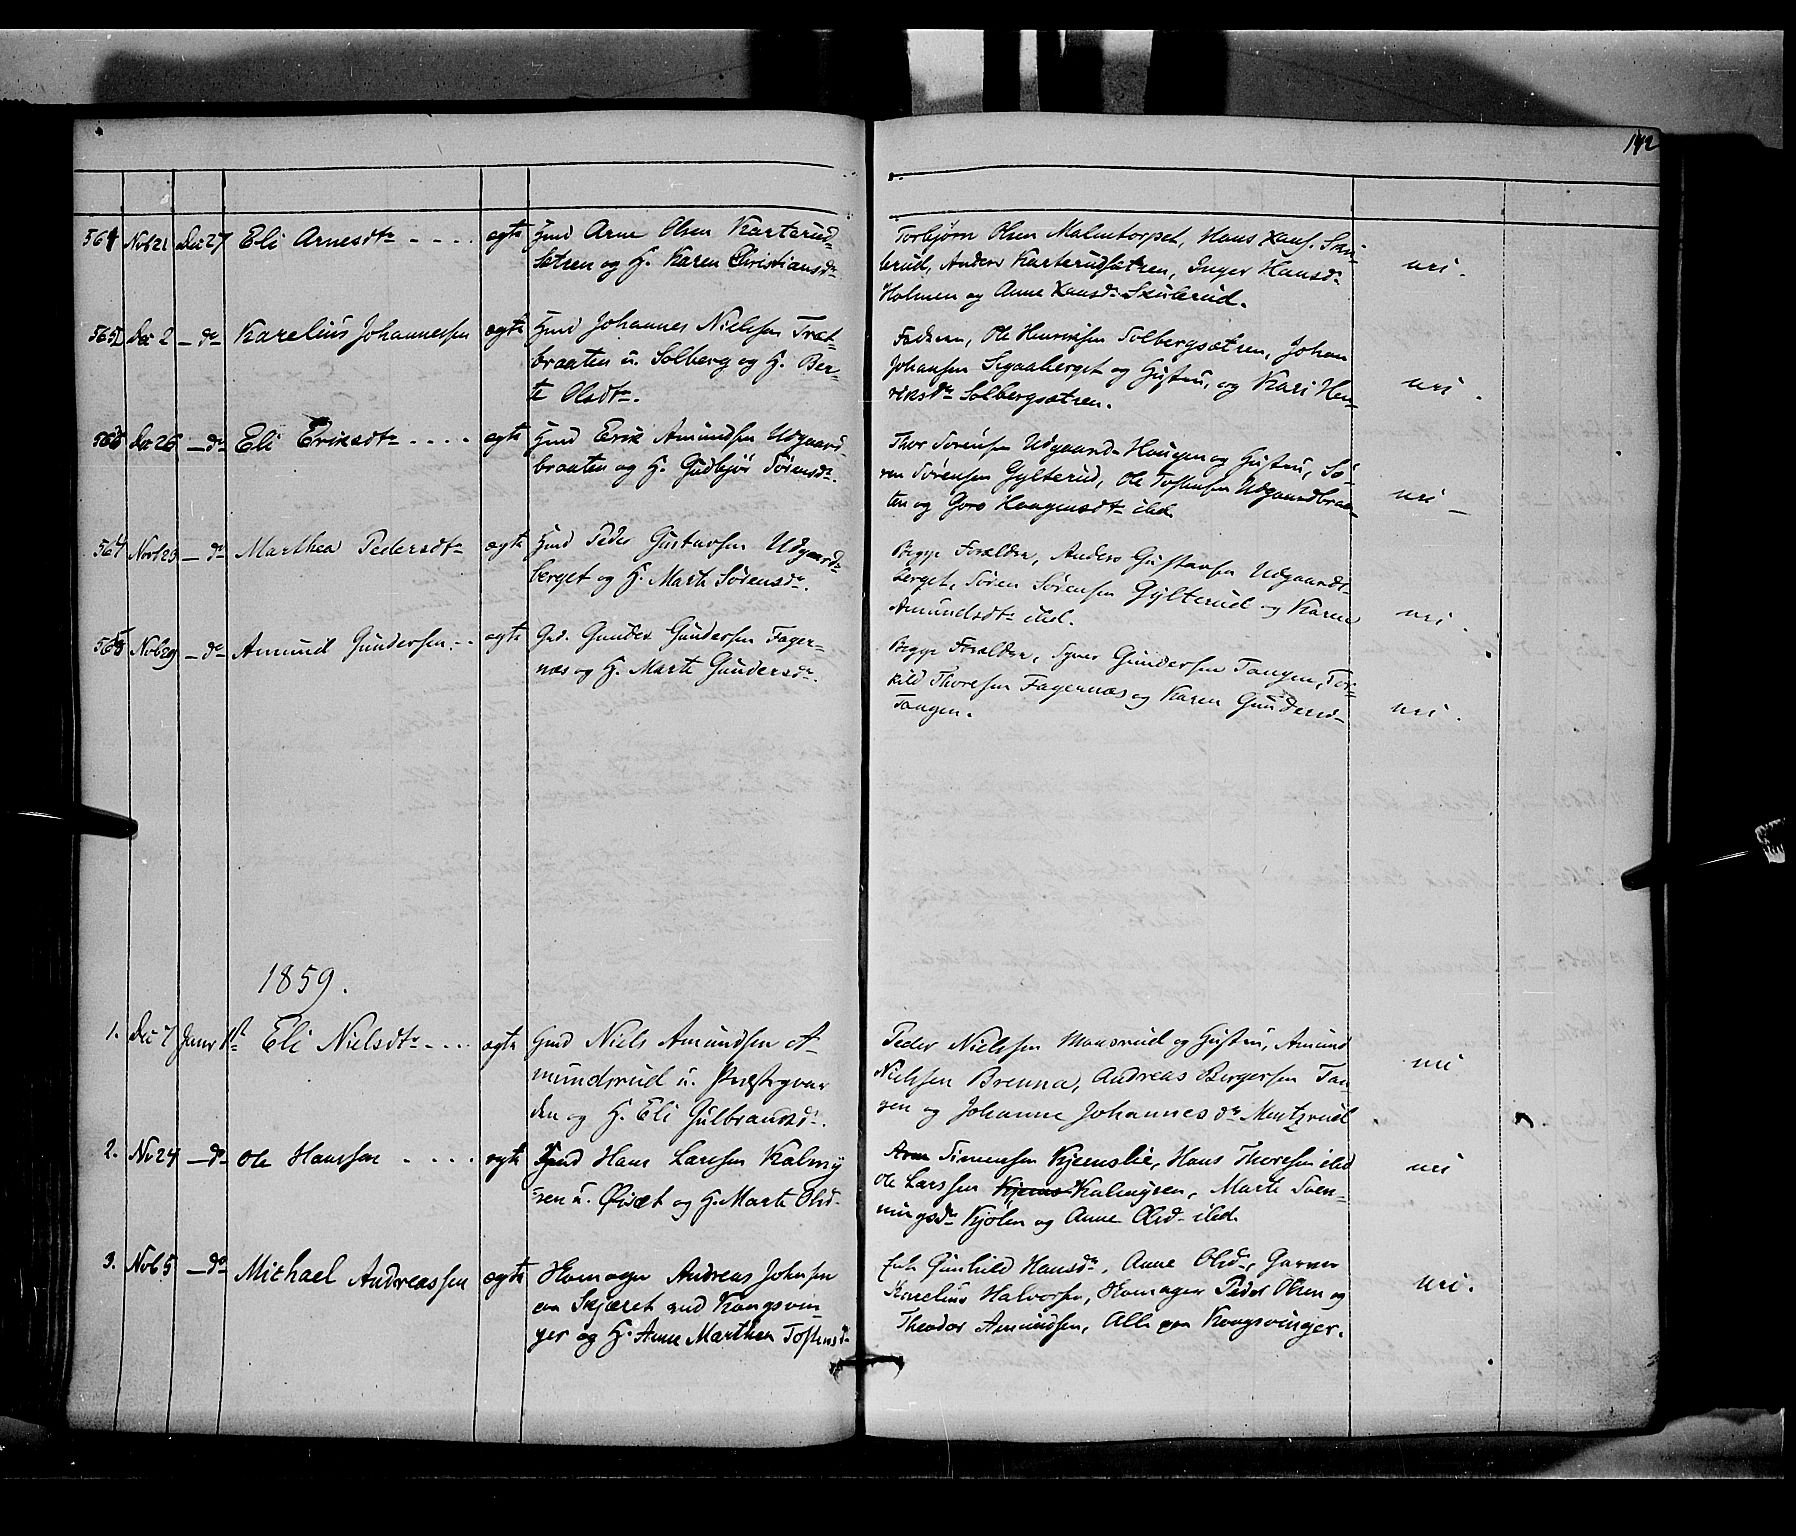 142
564 Nvb 21 Dec 27 Eli Arnesdtr ægte Gmd Arne Olsen Karterud-
sætren og H. Karen Christiansdr
Torbjørn Olsen Malmtorpet, Hans Hans. Sku-
lerud, Anders Karterudsætren, Inger Hansdr
Holmen og Anne Hansdr Skulerud.
uri.
565 Dec 2 do Karelius Johannessen ægte Gmd Johannes Nielsen Træt-
braaten u. Solberg og H. Ber-
te Olsdtr.
Faderen, Ole Henriksen Solbergsætren, Johan
Johansen Sigaaberget og Hustru, og Kari Hen-
riksdr Solbergsætren.
uri.
566 do Eli Eriksdtr ægte Gmd Erik Amundsen Udgaard-
braaten og H. Gudbjør Sørensdr.
Thor Sørensen Udgaard-Haugen og Hustru, Sø-
ren Sørensen Gylterud, Ole Tostensen Udgaardbraa-
ten og Goro Haagensdtr ibid.
uri
567 Novb 23 do Marthea Pedersdtr ægte Gmd Peder Gustavsen Udgaards-
berget og H. Marte Sørensdr.
Begge Forældre, Anders Gustavsen Udgaards-
berget, Søren Sørensen Gylterud og Karen
Amundsdtr ibid.
uri.
568 Novb 29 do Amund Gundersen ægte Gmd. Gunder Gundersen Fager-
næs og H. Marte Gundersdr.
Begge Forældre, Syver Gundersen Tangen, Tor-
kild Thoresen Fagernæs og Karen Gundersd
Tangen.
uri.
1859.
1. Dec 7 Janr 1st Eli Nielsdtr ægte Gmd Niels Amundsen A-
mundsrud u. Præstegaar-
den og H. Eli Gulbrandsd.
Peder Nielsen Monsrud og Hustru, Amund
Nielsen Brenna, Andreas Bergersen Tan-
gen og Johanne Johannesdr Mentzrud
uri
2. Nv 24 do Ole Hanssen ægte Gmd Hans Larssen Kalmy
ren u. Øisæt og H. Marte Olsd
Arne Simensen Kjernslie, Hans Thoresen ibid
Ole Larssen Kalmyren, Marte Svenningsdr Kjølen og Anne Olsd ibid.
uri
3. Novb 5 do Michael Andreassen ægte Homager Andreas Johnsen
paa Skjæret ved Kongsvin-
ger og H. Anne Marthea Tostensd
Enke Gunhild Hansdr, Anne Olsd, Garver
Karelius Halvorsen, Homager Peder Olsen og
Theodor Amundsen, Alle paa Kongsvinger.
uri.